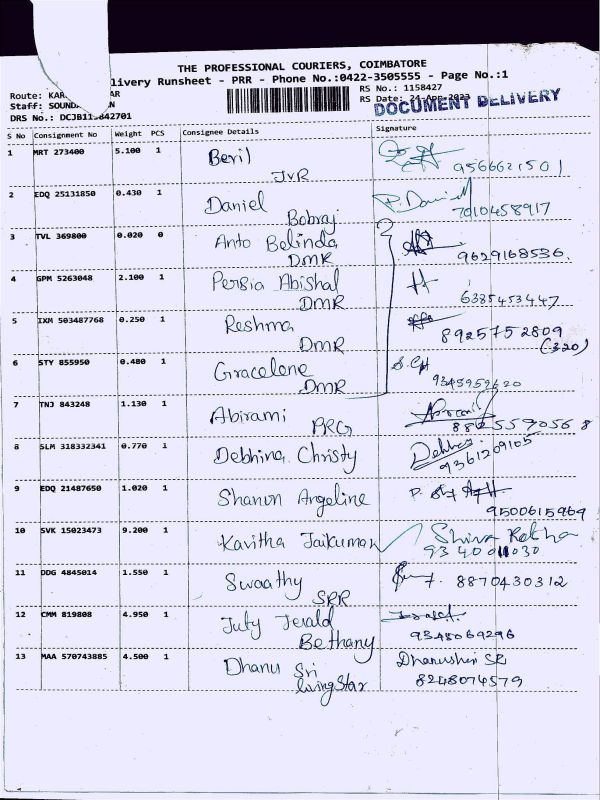 THE PROFESSIONAL COURIERS, COIMBATORE
livery Runsheet - PRR - Phone No.:0422-3505555 - Page No.:1
Route: KAR AR
RS No.: 1158427
Staff: SOUND N
RS Date: 24-Apr-2023
DOCUMENT DELIVERY
DRS No.: DCJB11 842701
S No Consignment No Weight PCS Consignee Details Signature
1 MRT 273400 5.100 1 Beril
JVR 9566621501
2 EDQ 25131850 0.430 1 Daniel P. Daniel
Bobraj 7010458917
3 TVL 369800 0.020 0 Anto Belinda
DMR 9629168536.
4 GPM 5263048 2.100 1 Persia Abishal
DMR 6385453447
5 IXM 503487768 0.250 1 Reshma
DMR 8925752809
(320)
6 STY 855950 0.480 1 Gracelene
DMR 9345959620
7 TNJ 843248 1.130 1 Abirami
PRG 8825590568
8 SLM 318332341 0.770 1 Debhina Christy
9361209105
9 EDQ 21487650 1.020 1 Sharon Angeline
9500615969
10 SVK 15023473 9.200 1 Kavitha Jaikumar Shiva Rekha
9340011030
11 DDG 4845014 1.550 1 Swaathy 8870430312
SRR
12 CMM 819808 4.950 1 Juty Jerald
Bethany 9345069296
13 MAA 570743885 4.500 1 Dhanu Sri Dhanushri SR
living Star 8248074579